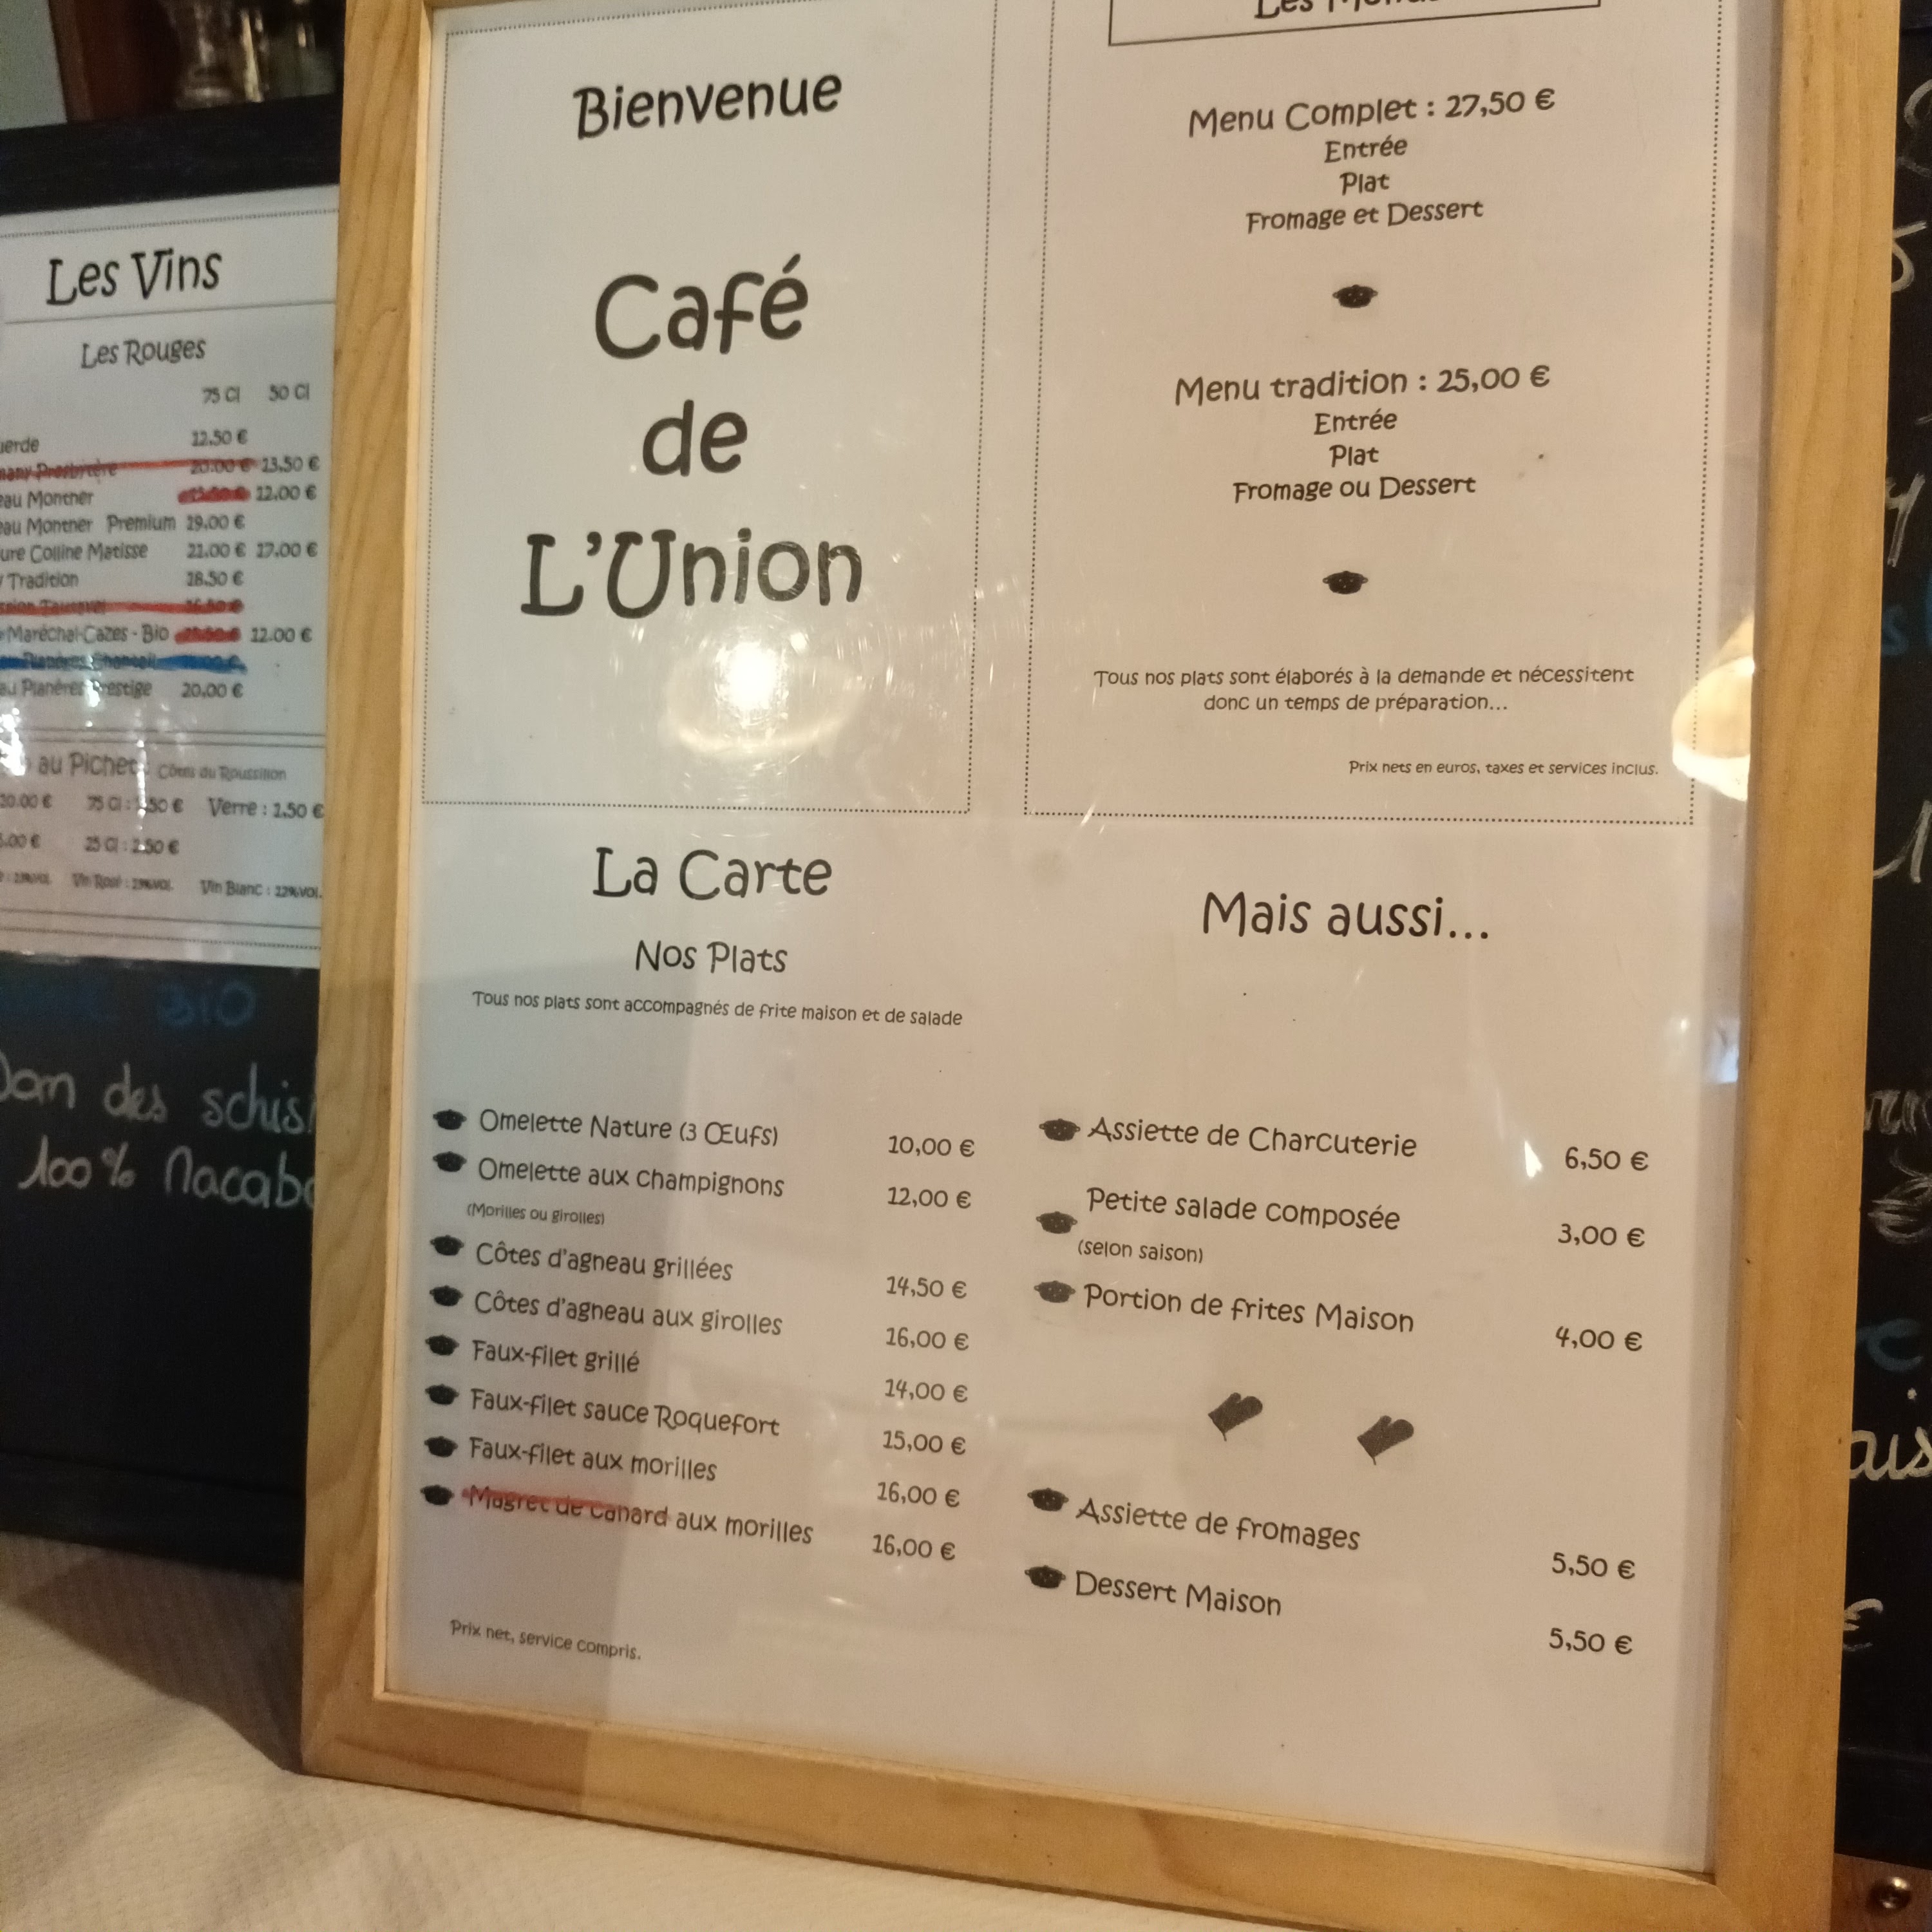 Les Vins
Les Rouges
75 Cl 50 Cl
12.50 €
20.00 € 13.50 €
Montner 12.00 €
Montner Premium 19.00 €
Colline Matisse 21.00 € 17.00 €
Tradition 18.50 €
Maréchal-Cazes - Bio 12.00 €
Planères Prestige 20.00 €
au Pichet Côtes du Roussillon
75 Cl : Verre : 1.50 €
25 Cl : 2.50 €
Vin Rosé : Vin Blanc : 12%VOL.
BIO
des
100%
Bienvenue
Café
de
L'Union
Les
Menu Complet : 27,50 €
Entrée
Plat
Fromage et Dessert
Menu tradition : 25,00 €
Entrée
Plat
Fromage ou Dessert
Tous nos plats sont élaborés à la demande et nécessitent
donc un temps de préparation...
Prix nets en euros, taxes et services inclus.
La Carte
Nos Plats
Tous nos plats sont accompagnés de frite maison et de salade
Omelette Nature (3 Œufs) 10,00 €
Omelette aux champignons 12,00 €
(Morilles ou girolles)
Côtes d'agneau grillées 14,50 €
Côtes d'agneau aux girolles 16,00 €
Faux-filet grillé 14,00 €
Faux-filet sauce Roquefort 15,00 €
Faux-filet aux morilles 16,00 €
Magret de canard aux morilles 16,00 €
Prix net, service compris.
Mais aussi...
Assiette de Charcuterie 6,50 €
Petite salade composée 3,00 €
(selon saison)
Portion de frites Maison 4,00 €
Assiette de fromages 5,50 €
Dessert Maison 5,50 €